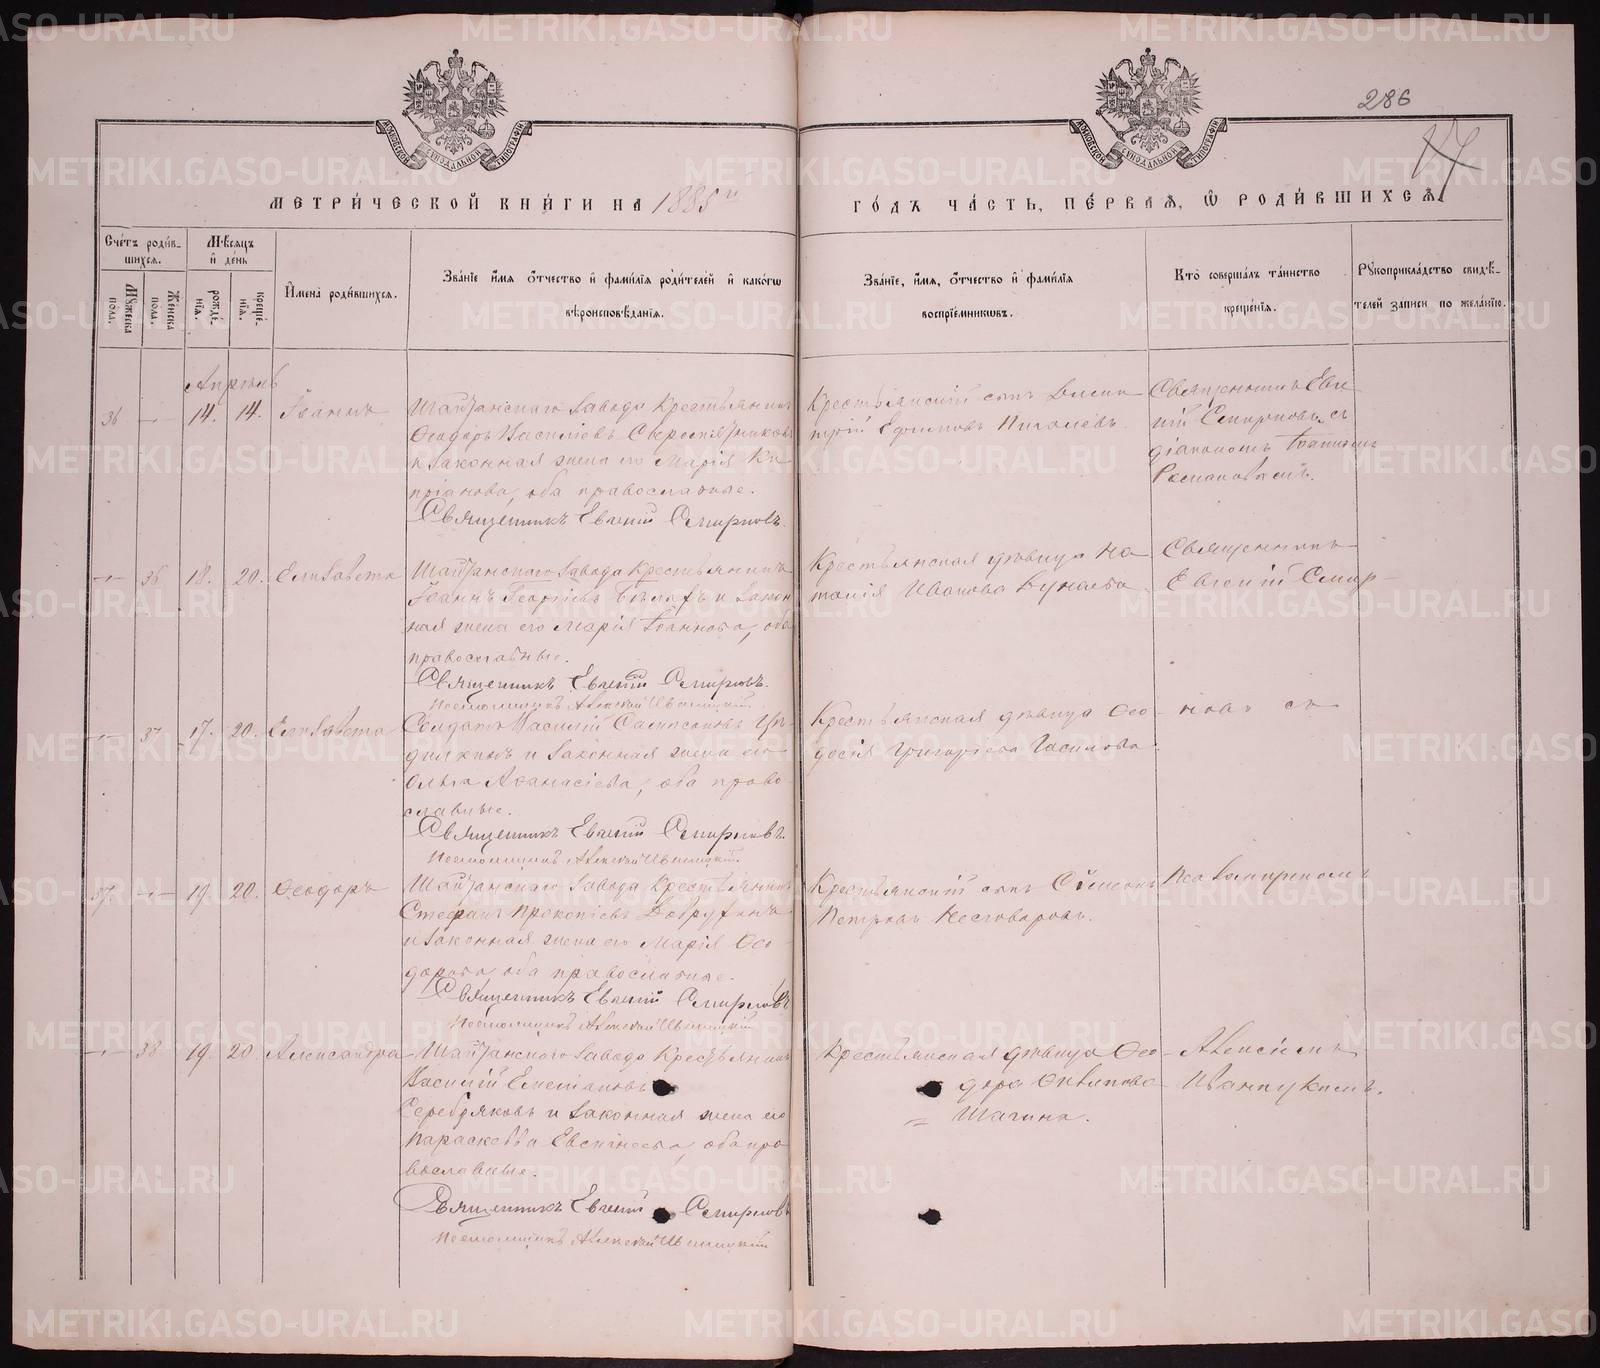 286
17
МОСКОВСКОЙ СѴНОДАЛЬНОЙ ТИПОГРАФІИ
МОСКОВСКОЙ СѴНОДАЛЬНОЙ ТИПОГРАФІИ
МЕТРИ́ЧЕСКОЙ КНИ́ГИ НА 1885 й
ГО́ДЪ ЧА́СТЬ, ПЕ́РВАѦ, Ѽ РОДИ́ВШИХСѦ
Сче́тъ роди́в-
шихся.
Мѣ́сяцъ
и҆ де́нь
Му́жеска
пола.
Же́нска
пола.
рожде́-
нїѧ.
креще́-
нїѧ.
И҆мена̀ роди́вшихся.
Зва́нїе и҆́мя ѻ҆́тчество и҆ фами́лїя роди́телей и҆ како́гѡ
вѣроисповѣ́данїѧ.
Зва́нїе, и҆́мя, ѻ҆́тчество и҆ фами́лїя
воспрїе́мникѡвъ.
Кто̀ соверша́лъ та́инство
креще́нїя.
Рꙋкоприкла́дство свидѣ́-
телей за́писи по жела́нїю.
Апрѣль
36 — 14. 14. Іоаннъ
Шайтанскаго завода Крестьянинъ
Ѳеодоръ Василіевъ
и законная жена его Марія Ки-
пріанова, оба православные.
Священникъ Евгеній Смирновъ.
Крестьянскій сынъ Дими-
трій Ефимовъ
Священникъ Евге-
ній Смирновъ съ
діакономъ Іоанномъ
— 36 18. 20. Елизавета
Шайтанскаго завода Крестьянинъ
Іоаннъ Георгіевъ и закон
ная жена его Марія Іоаннова, оба
православные.
Священникъ Евгеній Смирновъ.
Псаломщикъ Алексій
Крестьянская дѣвица На-
талія Иванова
Священникъ
Евгеній Смир-
— 37 17. 20. Елизавета
Солдатъ Василій Сампсоновъ
и законная жена его
Ольга Аѳанасіева, оба право-
славные.
Священникъ Евгеній Смирновъ.
Псаломщикъ Алексій
Крестьянская дѣвица Ѳео-
досія Григоріева
новъ съ
37. — 19. 20. Ѳеодоръ
Шайтанскаго завода Крестьянинъ
Стефанъ Прокопіевъ
и законная жена его Марія Ѳео-
дорова, оба православные.
Священникъ Евгеній Смирновъ
Псаломщикъ Алексій
Крестьянскій сынъ Сѵмеонъ
Петровъ Несговоровъ.
Псаломщикомъ
— 38 19. 20. Александра
Шайтанскаго завода Крестьянинъ
Василій Емеліановъ
Серебряковъ и законная жена его
Параскева Евсигнеева, оба пра-
вославные.
Священникъ Евгеній Смирновъ
Псаломщикъ Алексій
Крестьянская дѣвица Ѳео-
дора
= Шагина.
Алексіемъ
METRIKI.GASO-URAL.RU